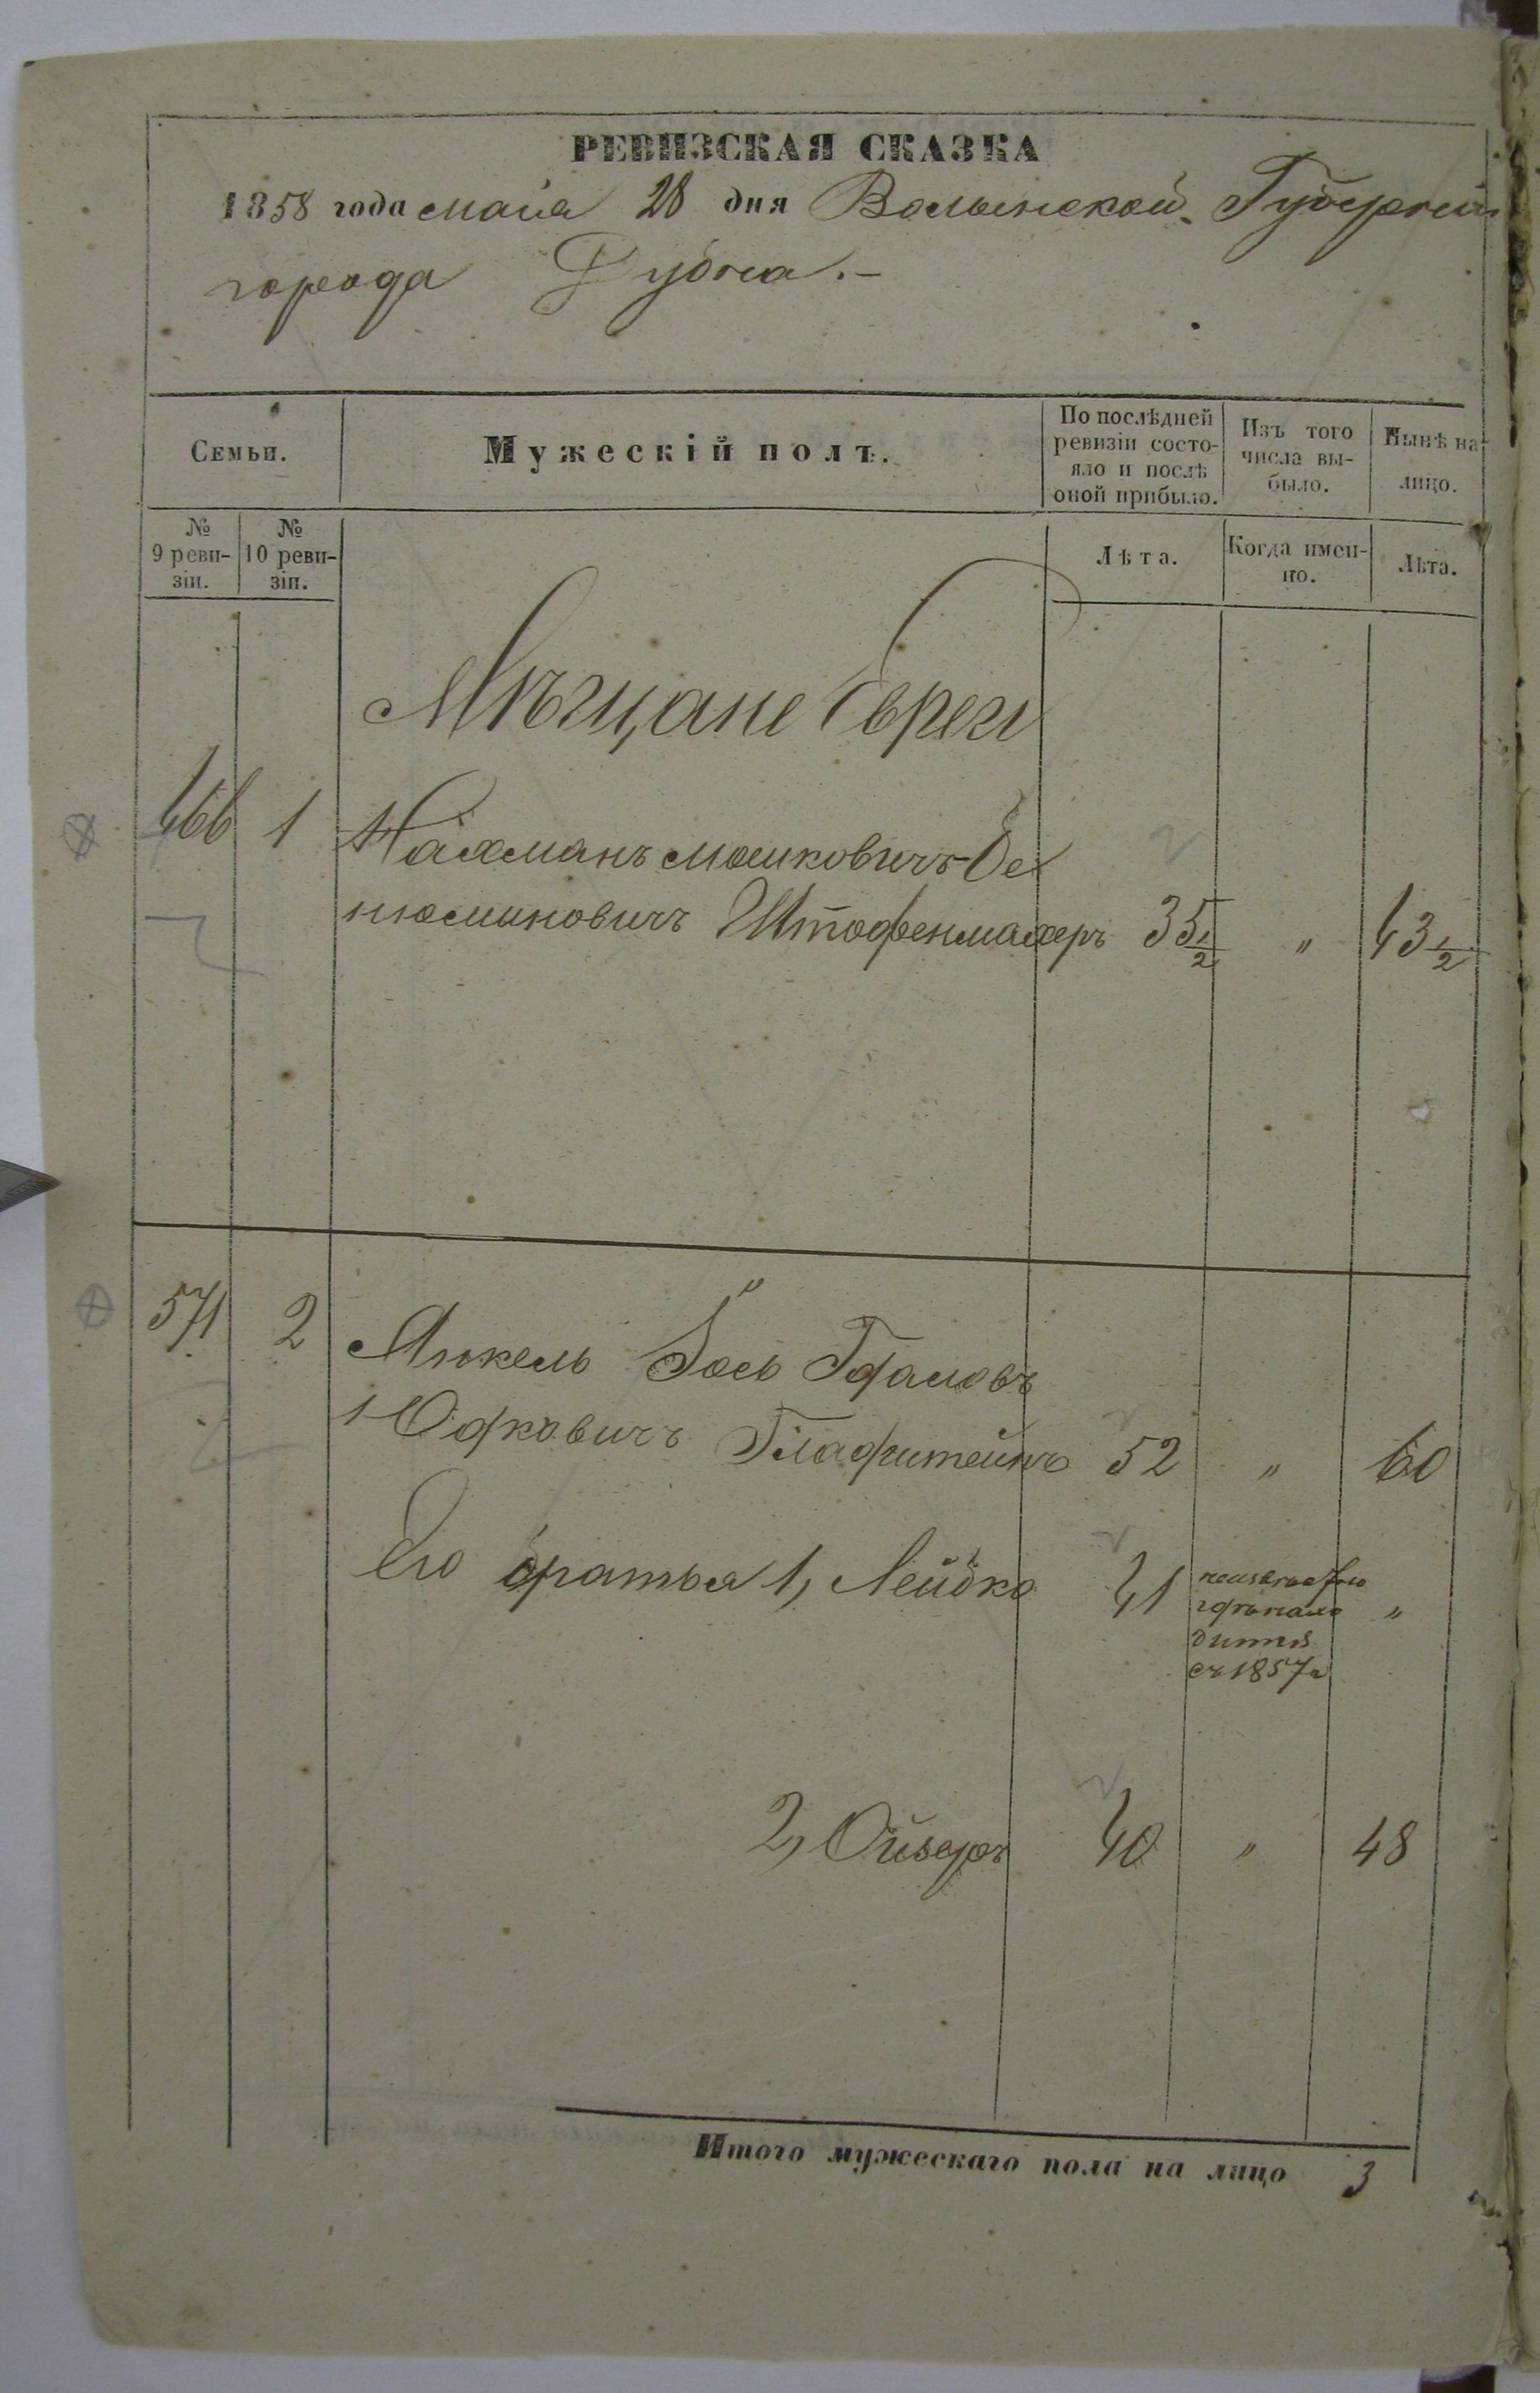 РЕВИЗСКАЯ СКАЗКА
1858 года мaiя 28 дня Волынской Губернiи
города Дубна.-
Семьи.
Мужескiй полъ.
По послѣдней ревизiи состо-
яло и послѣ оной прибыло.
Изъ того числа вы-
было.
Нынѣ на-
лицо.
№ 9 реви-
зiи.
№ 10 реви-
зiи.
Лѣта.
Когда имен-
но.
Лѣта.
Мѣщане Евреи
466 1 Нахманъ Мошковичъ Бе
нюминовичъ Штофенмахеръ 35 1/2 " 43 1/2
571 2
Юдковичъ 52 " 60
Его братья 1, Лейбко 41 "
съ 1857 г
2, Ойзеръ 40 " 48
Итого мужескаго пола на лицо 3